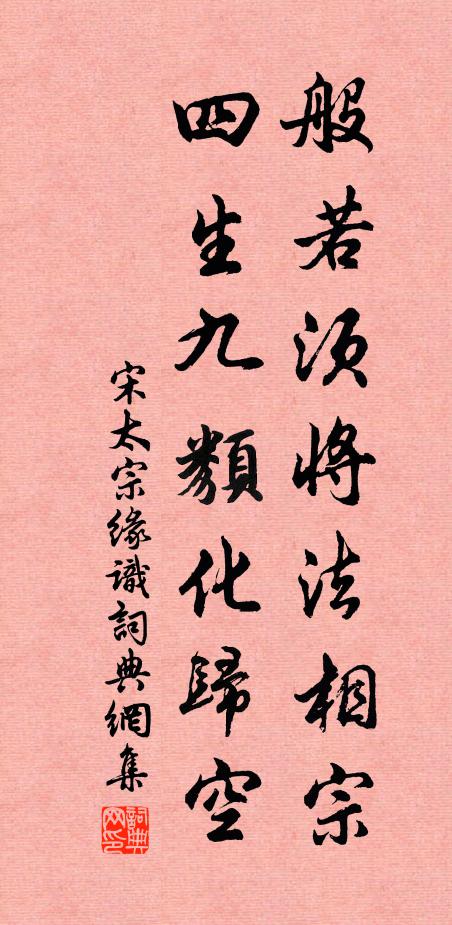 般若須將法相宗
四生九類化歸空
宋太宗緣識詞典網集
詞典
网印